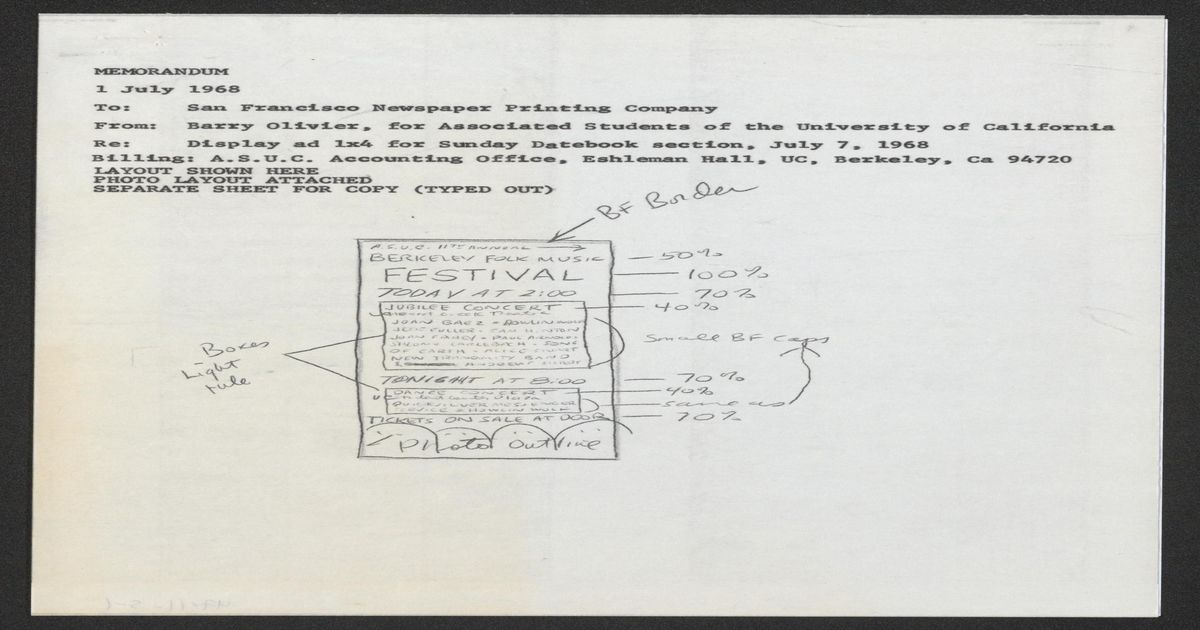 MEMORANDUM
1 July 1968
To: San Francisco Newspaper Printing Company
From: Barry Olivier, for Associated Students of the University of California
Re: Display ad 1x4 for Sunday Datebook section, July 7, 1968
Billing: A.S.U.C. Accounting Office, Eshleman Hall, UC, Berkeley, Ca 94720
LAYOUT SHOWN HERE
PHOTO LAYOUT ATTACHED
SEPARATE SHEET FOR COPY (TYPED OUT)
BF Border
A.S.U.C. 11TH ANNUAL
BERKELEY FOLK MUSIC — 50%
FESTIVAL — 100%
TODAY AT 2:00 — 70%
JUBILEE CONCERT — 40%
JOAN BAEZ • HOWLIN WOLF
JESSE FULLER • SAM HINTON
JOHN FAHEY • PAUL ARNOLDI
OF EARTH • ALICE STUART
NEW TRANQUILITY BAND
Small BF caps
Boxes
Light
rule
TONIGHT AT 8:00 — 70%
DANCE CONCERT — 40%
QUICKSILVER MESSENGER — same as
SERVICE & HOWLIN WOLF
TICKETS ON SALE AT DOOR — 70%
Photo Outline